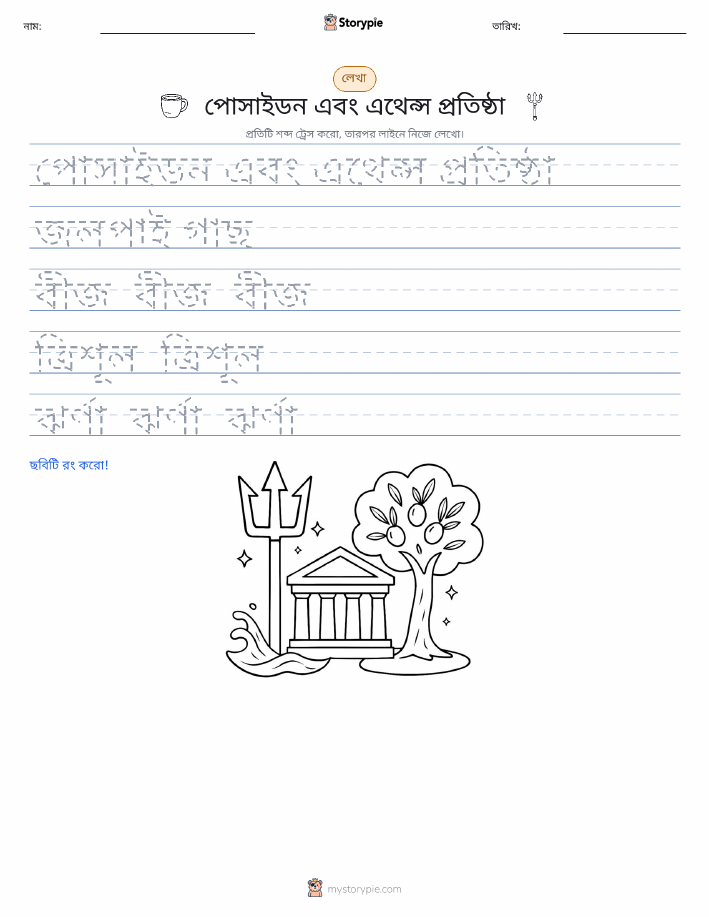 নাম: Storypie তারিখ:
লেখা
পোসাইডন এবং এথেন্স প্রতিষ্ঠা
প্রতিটি শব্দ ট্রেস করো, তারপর লাইনে নিজে লেখো।
পোসাইডন এবং এথেন্স প্রতিষ্ঠা
জলপাই গাছ
বীজ বীজ বীজ
ত্রিশূল ত্রিশূল
ঝর্ণা ঝর্ণা ঝর্ণা
ছবিটি রং করো!
mystorypie.com